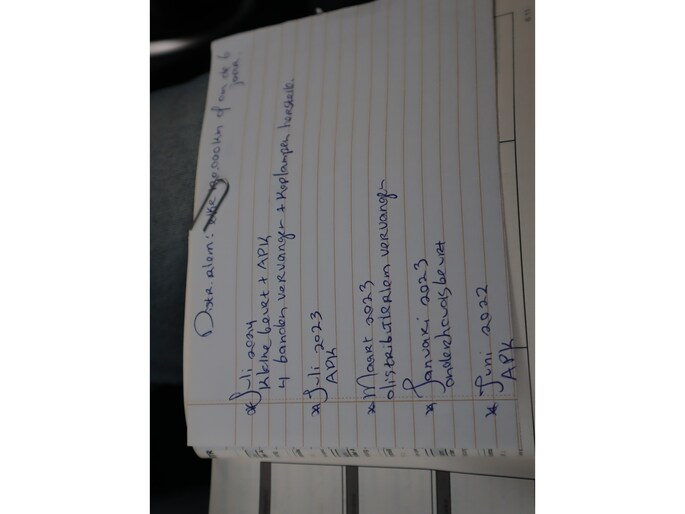 Distr. riem: elke 90.000km of om de 6
jaar.
* Juli 2024
Kleine beurt + APK
4 banden vervangen + Koplampen herstelb.
* Juli 2023
APK
* Maart 2023
distributieriem vervangen
* Januari 2023
onderhoudsbeurt
* Juni 2022
APK